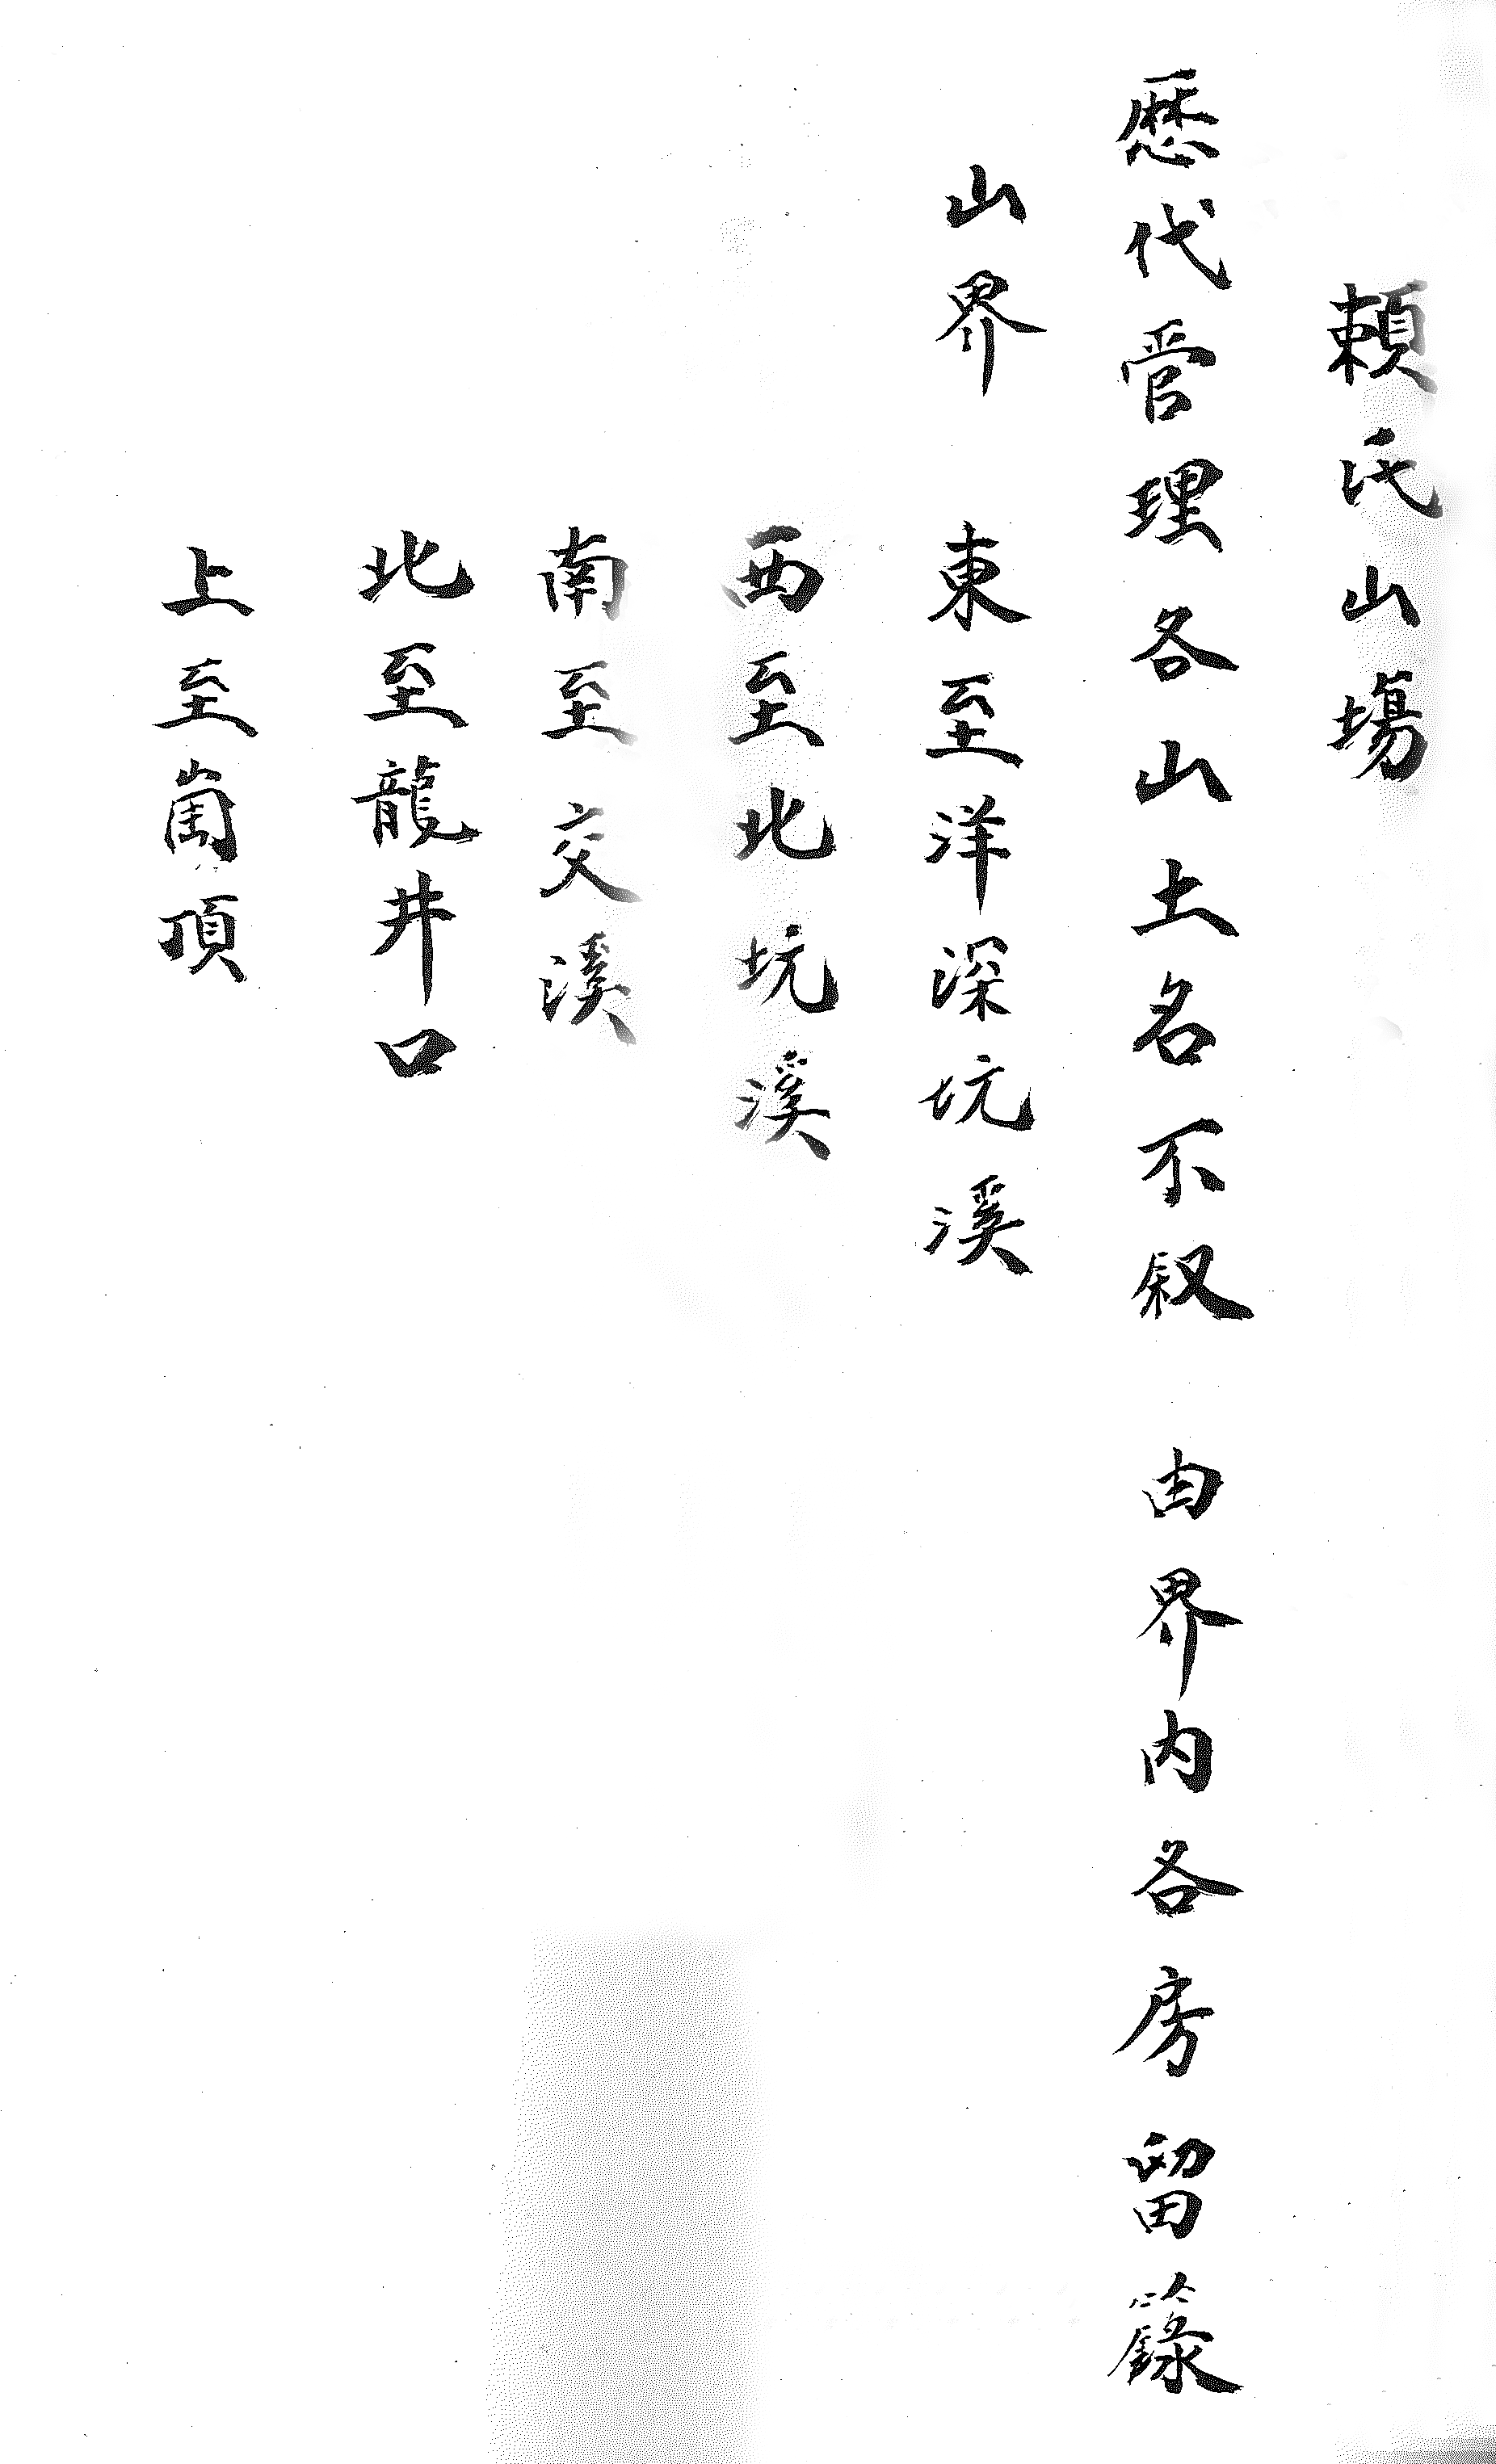 賴氏山塲
歷代管理各山土名不叙 由界內各房留籙
山界 東至洋深坑溪
西至北坑溪
南至交溪
北至龍井口
上至崗頂